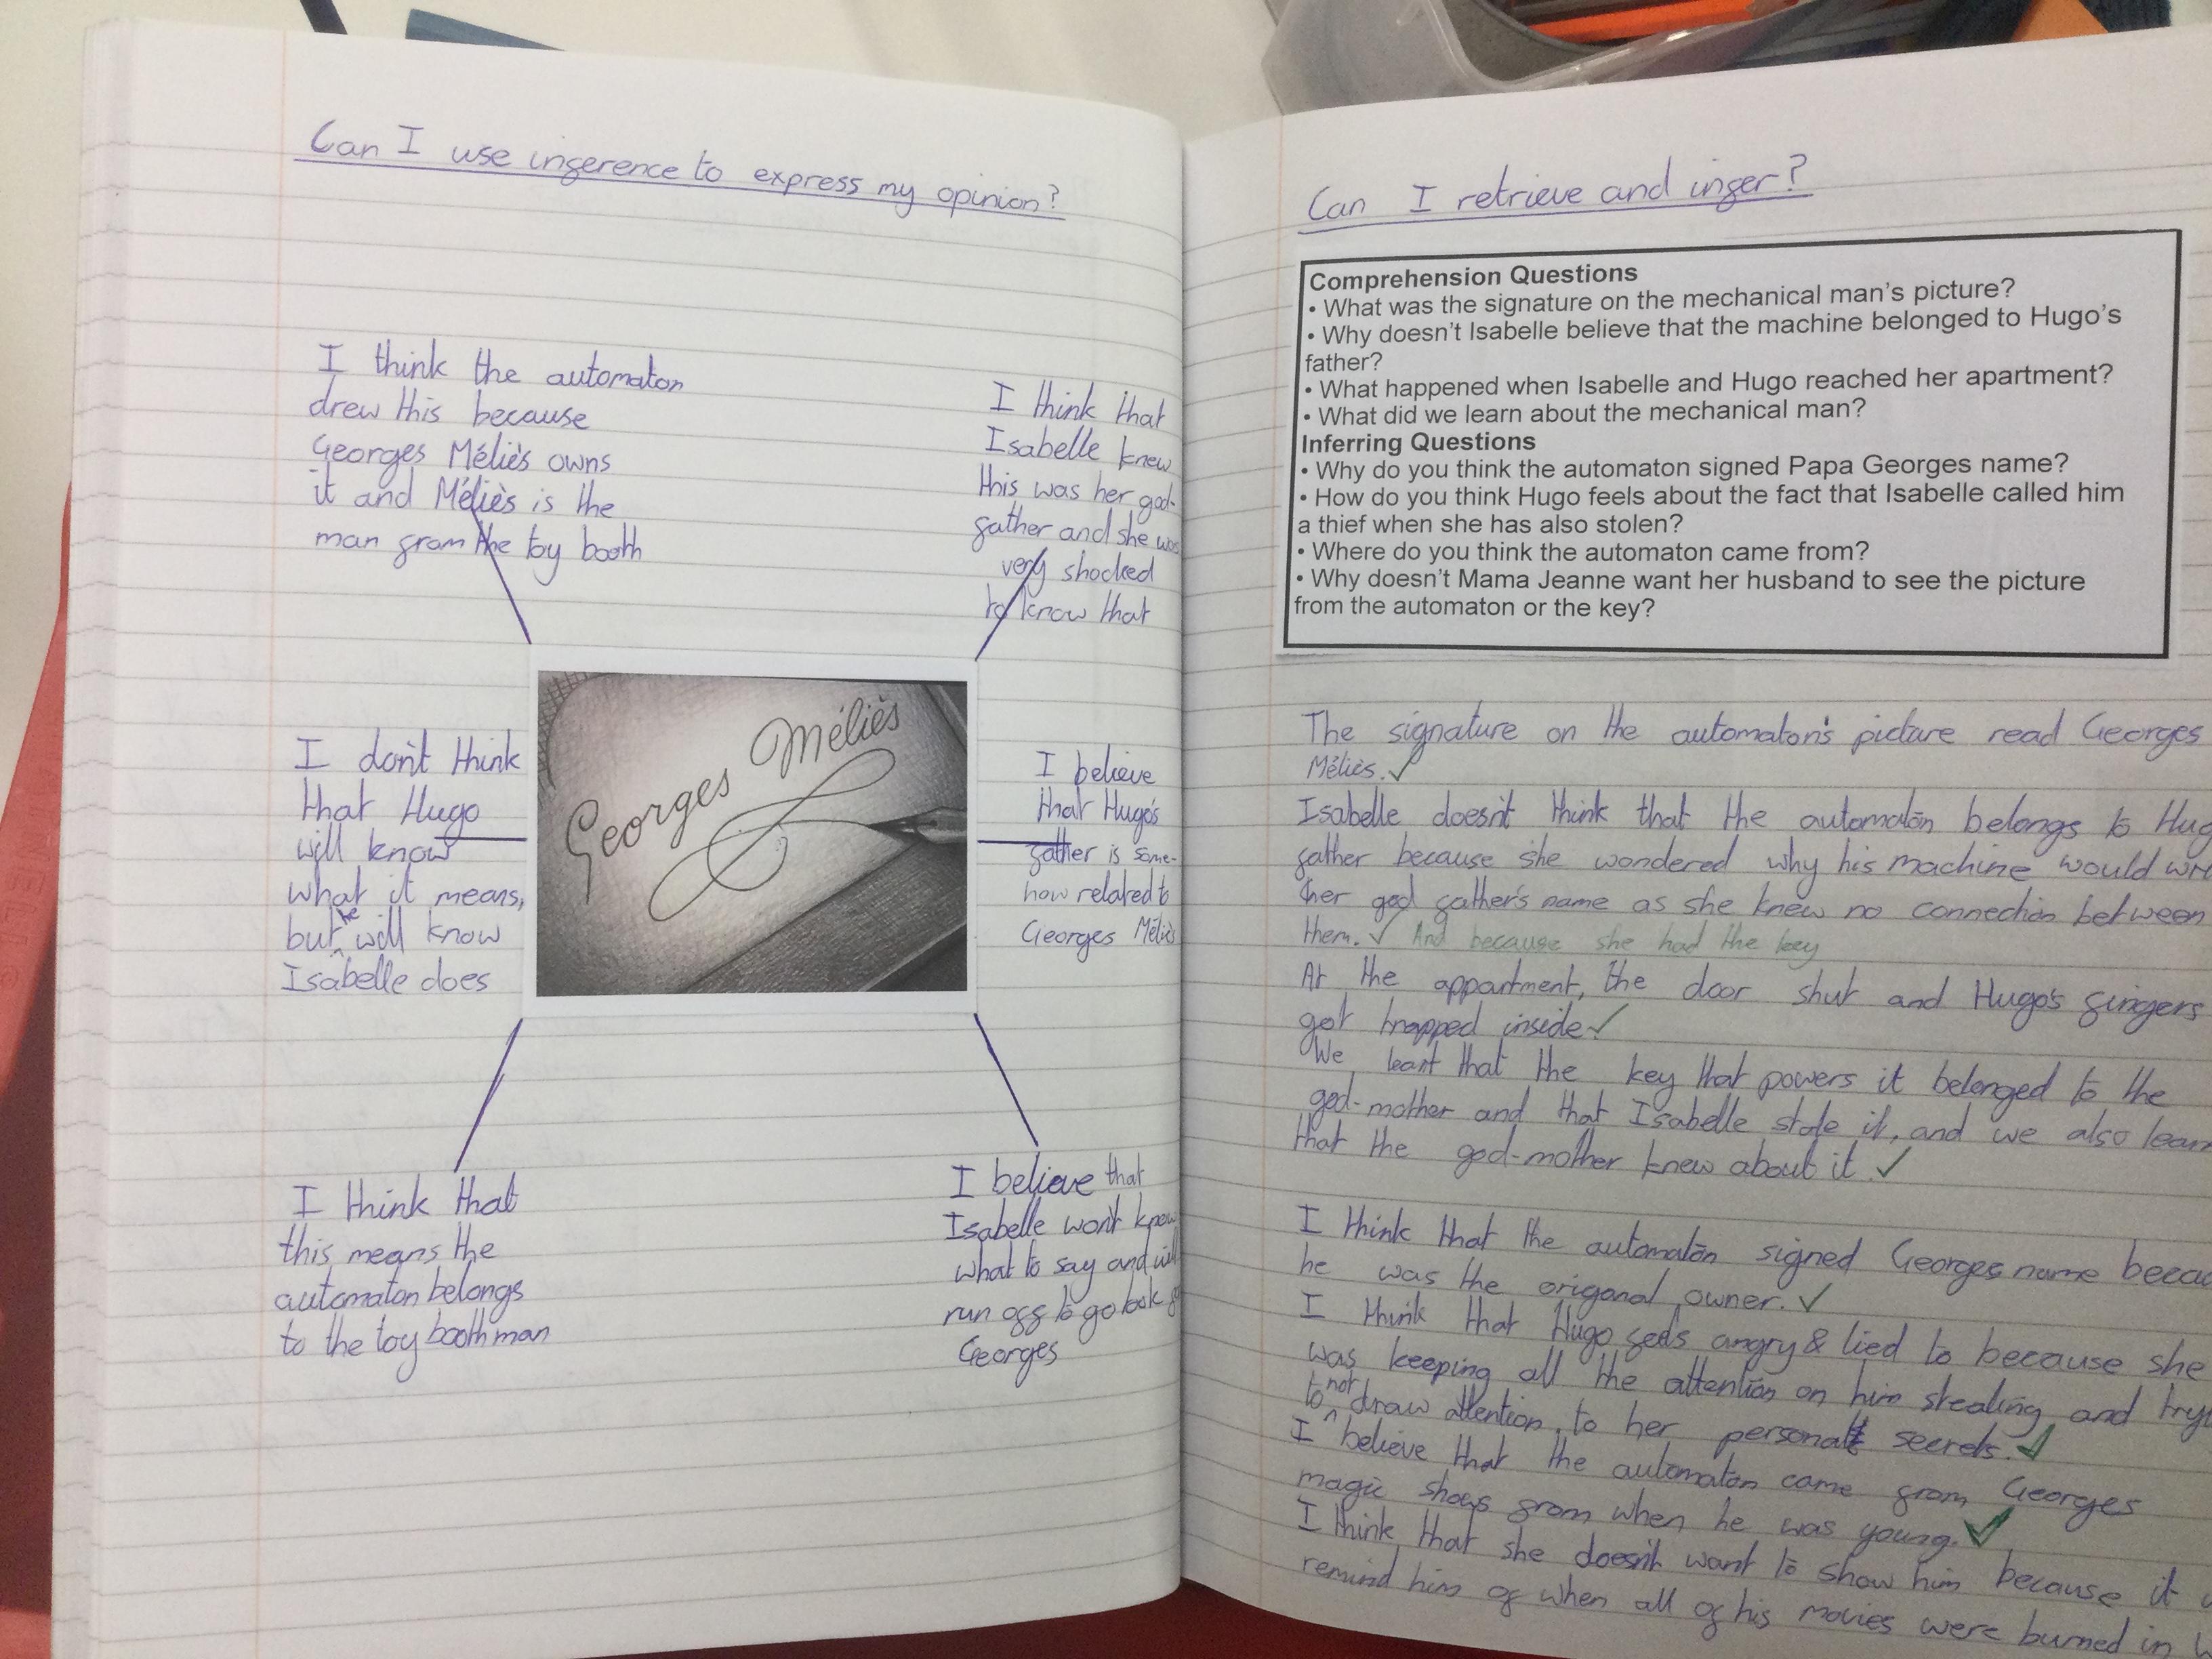 Can I use inference to express my opinion?
I think the automaton
drew this because
Georges Méliès owns
it and Méliès is the
man from the toy booth
I think that
Isabelle knew
this was her god-
father and she was
very shocked
to know that
I don't think
that Hugo
will know
what it means,
but he will know
Isabelle does
Georges Méliès
I believe
that Hugo's
father is some-
how related to
Georges Méliès
I think that
this means the
automaton belongs
to the toy booth man
I believe that
Isabelle won't know
what to say and will
run off to go look
Georges
Can I retrieve and infer?
Comprehension Questions
• What was the signature on the mechanical man's picture?
• Why doesn't Isabelle believe that the machine belonged to Hugo's
father?
• What happened when Isabelle and Hugo reached her apartment?
• What did we learn about the mechanical man?
Inferring Questions
• Why do you think the automaton signed Papa Georges name?
• How do you think Hugo feels about the fact that Isabelle called him
a thief when she has also stolen?
• Where do you think the automaton came from?
• Why doesn't Mama Jeanne want her husband to see the picture
from the automaton or the key?
The signature on the automaton's picture read Georges
Méliès. ✓
Isabelle doesn't think that the automaton belongs to
father because she wondered why his machine would
her god father's name as she knew no connection between
them. ✓ And because she had the key
At the appartment, the door shut and Hugo's fingers
got trapped inside ✓
We leart that the key that powers it belonged to the
god-mother and that Isabelle stole it, and we also learn
that the god-mother knew about it. ✓
I think that the automaton signed Georges name
he was the origonal owner. ✓
I think that Hugo feels angry & lied to because she
was keeping all the attention on him stealing and
to not draw attention to her personal secrets. ✓
I believe that the automaton came from Georges
magic shows from when he was young. ✓
I think that she doesn't want to show him because it
remind him of when all of his movies were burned in